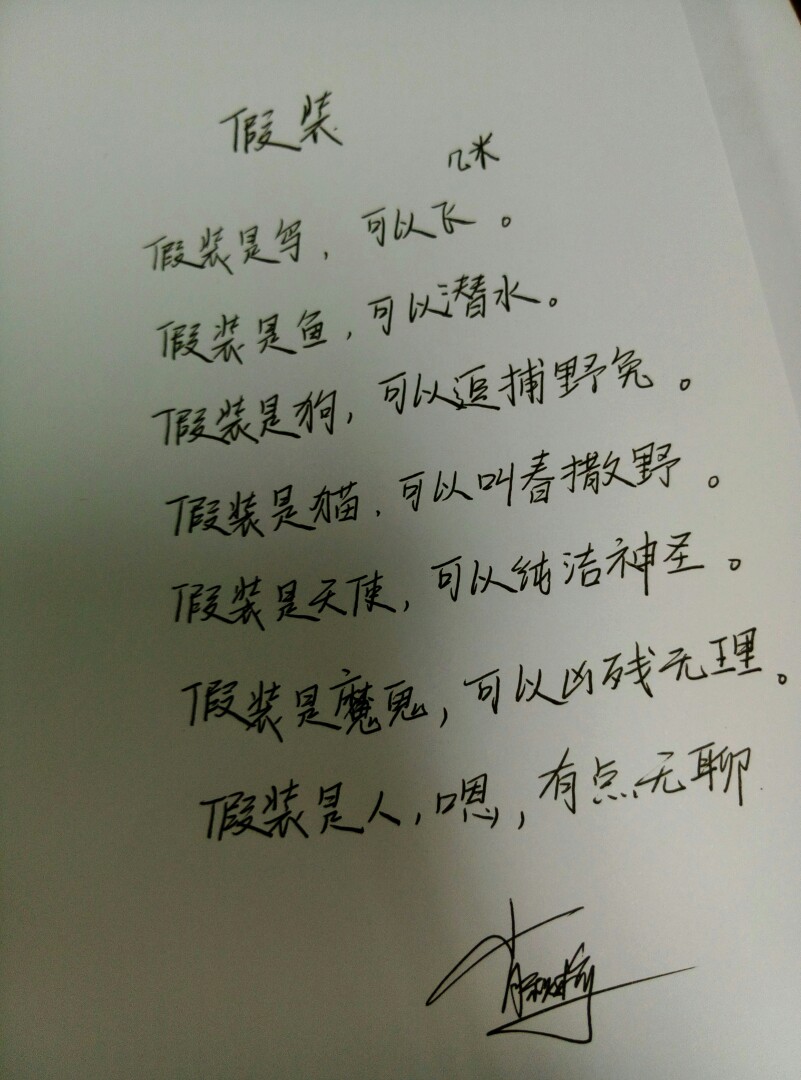 假装
几米
假装是鸟，可以飞。
假装是鱼，可以潜水。
假装是狗，可以逗捕野兔。
假装是猫，可以叫春撒野。
假装是天使，可以纯洁神圣。
假装是魔鬼，可以凶残无理。
假装是人，嗯，有点无聊